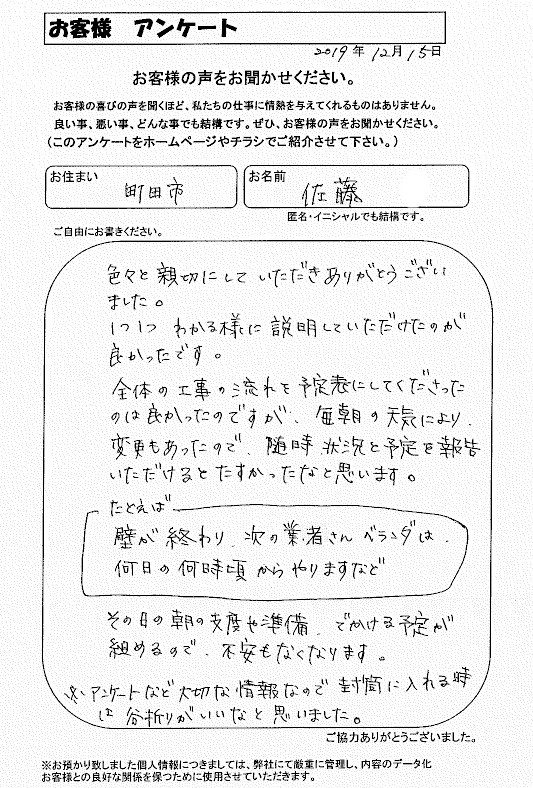 お客様　アンケート
2019年 12月 15日
お客様の声をお聞かせください。
お客様の喜びの声を聞くほど、私たちの仕事に情熱を与えてくれるものはありません。
良い事、悪い事、どんな事でも結構です。ぜひ、お客様の声をお聞かせください。
(このアンケートをホームページやチラシでご紹介させて下さい。)
お住まい 町田市 お名前 佐藤
匿名・イニシャルでも結構です。
ご自由にお書きください。
色々と親切にして いただきありがとうござい
ました。
1つ1つ わかる様に説明していただけたのが
良かったです。
全体の工事の流れを予定表にしてくださった
のは良かったのですが、毎朝の天気により、
変更もあったので、随時、状況と予定を報告
いただけるとたすかったなと思います。
たとえば
壁が終わり、次の業者さん ベランダは、
何日の何時頃からやりますなど
その日の朝の支度や準備、でかける予定が
組めるので、不安もなくなります。
※アンケートなど大切な情報なので 封筒に入れる時
は 谷折りがいいなと思いました。
ご協力ありがとうございました。
※お預かり致しました個人情報につきましては、弊社にて厳重に管理し、内容のデータ化
お客様との良好な関係を保つために使用させていただきます。